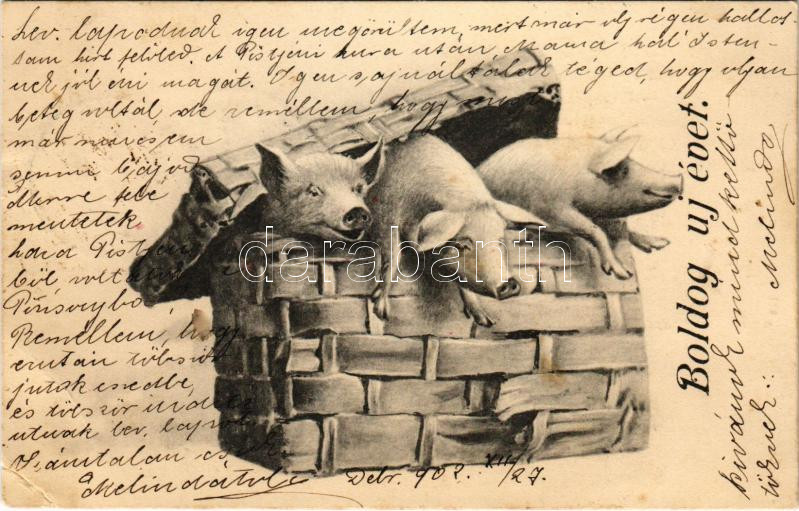 kev. lapodnak igen megörültem, mert már oly régen hallos-
sam hirt felöled. A Pistyéni kura után Mama hál Isten-
nek jól érzi magát. Igen sajnáltalak téged, hogy olyan
beteg voltál, de reméllem, hogy most
már nincsen
semmi bajod
Merre tete
mentetek
haza Pistyén
ből, voltatok
Pozsonyba
Reméllem, hogy
ezután többször
jutok eszedbe,
és többször
utnak kev. lapod
Számtalan csók
Melindától.
Debr. 902. XII/27.
Boldog uj évet.
kivánok mind kettő
töknek:
Melinda
darabanth